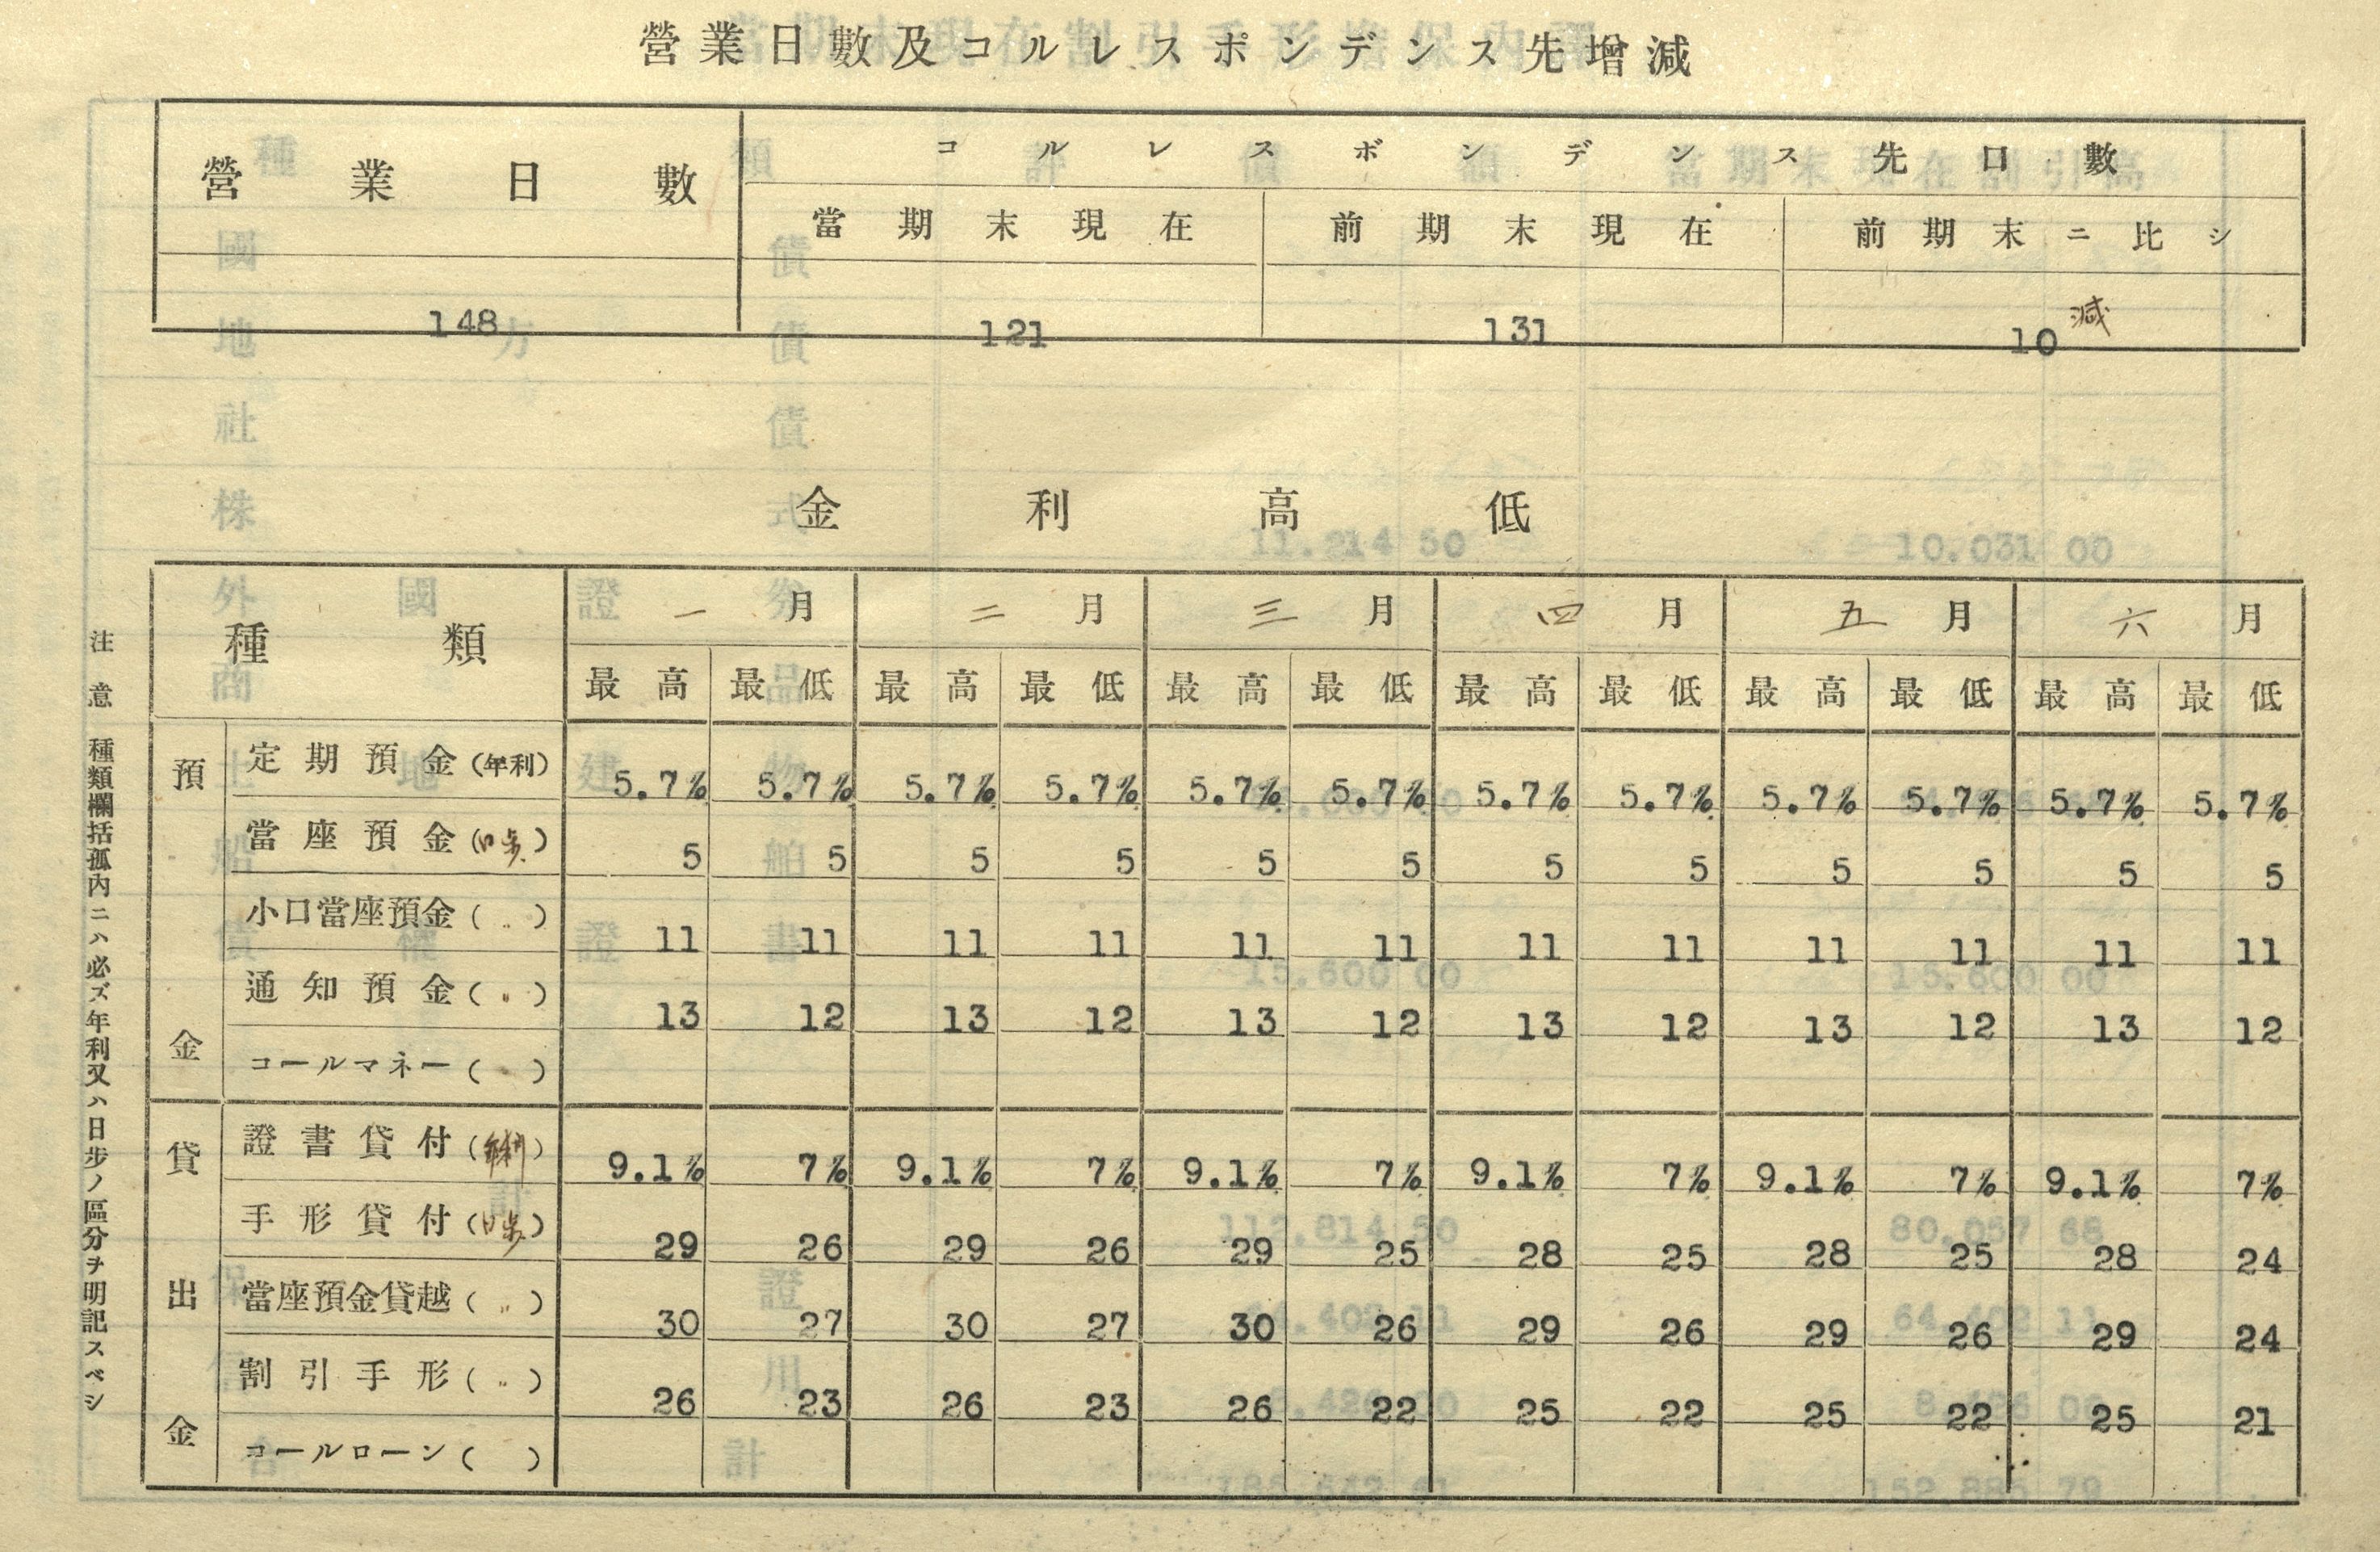 營業日數及コルレスポンデンス先增減
營業日數 コルレスボンデンス先口數
當期末現在 前期末現在 前期末ニ比シ
148 121 131 10 減
金利高低
種類 一月 二月 三月 四月 五月 六月
最高 最低 最高 最低 最高 最低 最高 最低 最高 最低 最高 最低
預金
定期預金(年利) 5.7% 5.7% 5.7% 5.7% 5.7% 5.7% 5.7% 5.7% 5.7% 5.7% 5.7% 5.7%
當座預金(日步) 5 5 5 5 5 5 5 5 5 5 5 5
小口當座預金(〃) 11 11 11 11 11 11 11 11 11 11 11 11
通知預金(〃) 13 12 13 12 13 12 13 12 13 12 13 12
コールマネー( )
貸出金
證書貸付(年利) 9.1% 7% 9.1% 7% 9.1% 7% 9.1% 7% 9.1% 7% 9.1% 7%
手形貸付(日步) 29 26 29 26 29 25 28 25 28 25 28 24
當座預金貸越(〃) 30 27 30 27 30 26 29 26 29 26 29 24
割引手形(〃) 26 23 26 23 26 22 25 22 25 22 25 21
コールローン( )
注意 種類欄括孤內ニハ必ズ年利又ハ日步ノ區分ヲ明記スベシ